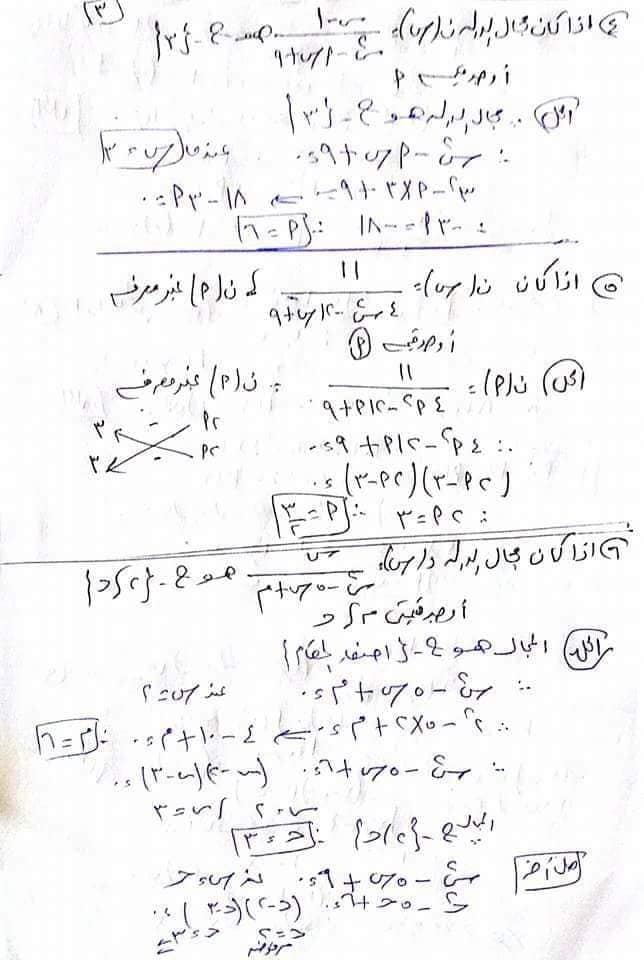 ٣
٤) اذا كان مجال الدالة ن(س) = س-١ / س٢-٢س+٩ هو ح-{٣}
أوجد قيمة ٢
الحل ∵ مجال الدالة هو ح-{٣}
∴ س٢-٢س+٩=٠ عندما س=٣
٣٢-٢×٣+٩=٠ ← ١٨-٣٢=٠
∴ -٣٢=-١٨ ∴ ٢=٦
٥) اذا كان ن(س) = ١١ / ٤س٢-١٢س+٩ ، ن(٢) غير معرفة
أوجد قيمة ٢
الحل ن(٢) = ١١ / ٤٢٢-١٢٢+٩ ∵ ن(٢) غير معرفة
∴ ٤٢٢-١٢٢+٩=٠ ٢٢ - ٣
(٢٢-٣)(٢٢-٣)=٠ ٢٢ - ٣
∴ ٢٢=٣ ∴ ٢=٣/٢
٦) اذا كان مجال الدالة د(س) = س / س٢-٥س+م هو ح-{٢،د}
أوجد قيمتى م، د
الحل المجال هو ح-{اصفار المقام}
∴ س٢-٥س+م=٠ عند س=٢
∴ ٢٢-٥×٢+م=٠ ← ٤-١٠+م=٠ ∴ م=٦
∴ س٢-٥س+٦=٠ (س-٢)(س-٣)=٠
س=٢ ، س=٣
المجال ح-{٢،د} ∴ د=٣
حل آخر س٢-٥س+٦=٠ عند س=د
د٢-٥د+٦=٠ (د-٢)(د-٣)=٠
د=٢ مرفوض د=٣